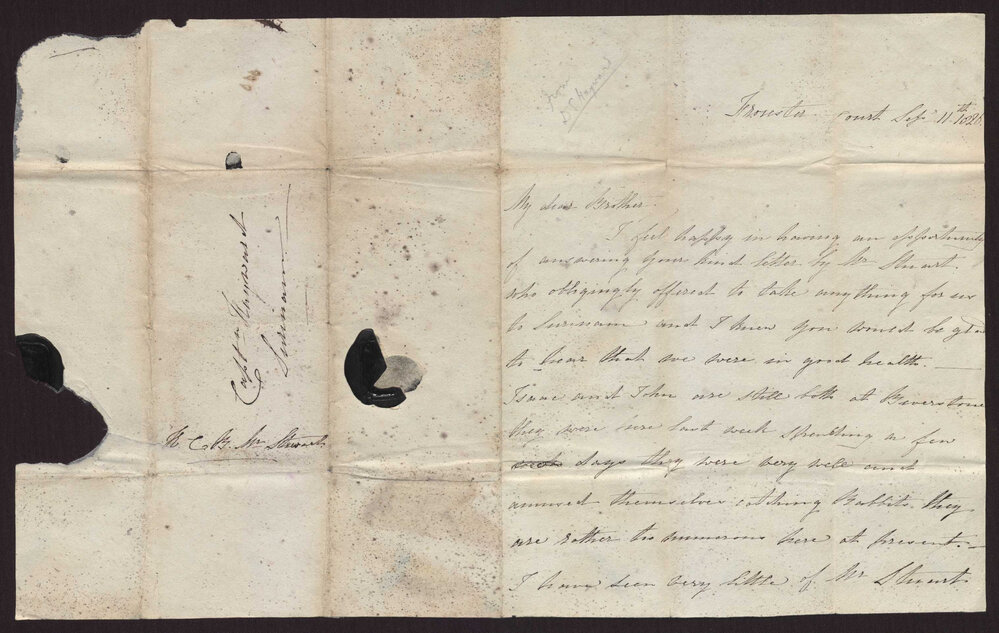 Capt<sup>n</sup> Hayward
Surinam
By Mr Stuart
From
Hayward
Frouster Court Sep 11th 1828
My dear Brother
I feel happy in having an opportunity
of answering your kind letter by Mr Stuart.
who obligingly offered to take anything for us
to Surinam and I knew you would be glad
to hear that we were in good health.
Isaac and John are still both at Beverstone
they were here last week spending a few
days they were very well and
amused themselves catching Rabbits they
are rather too numerous here at present.
I have seen very little of Mr Stuart